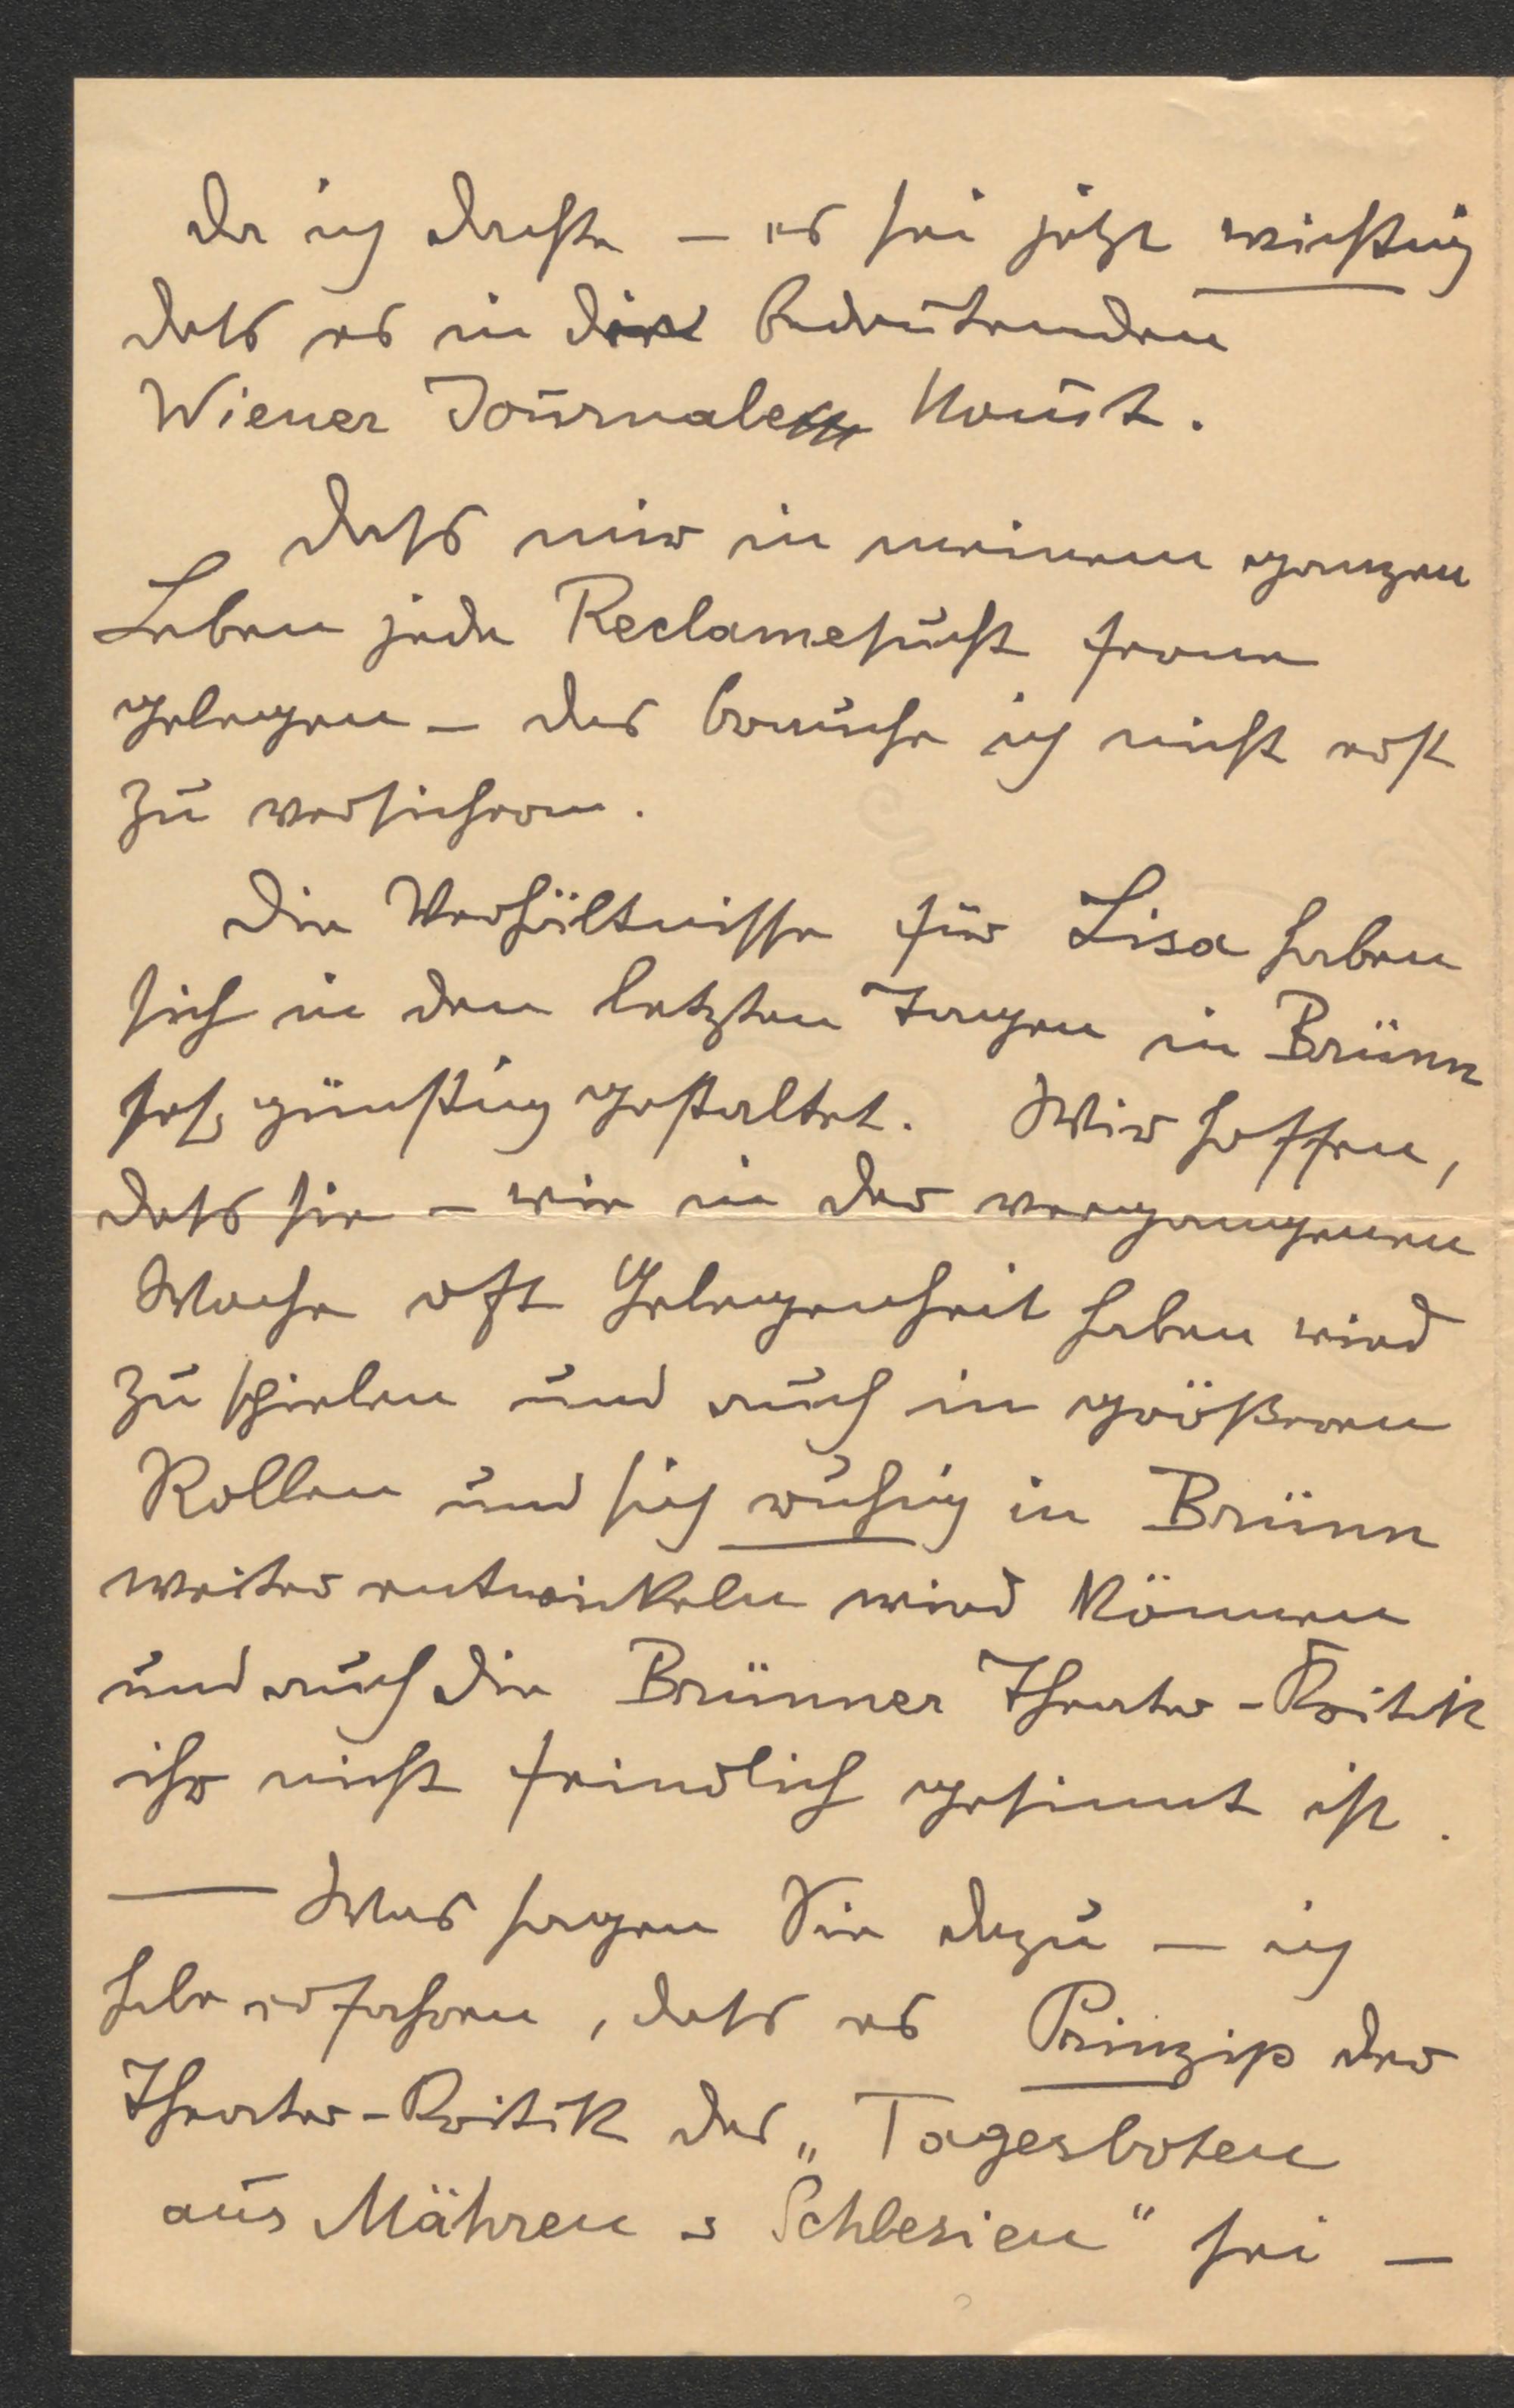 da ich dachte – es sei jetzt wichtig
dass es in die bedeutenden
Wiener Journale komt.
dass mir in meinem ganzen
Leben jede Reclamesucht ferne
gelegen – das brauche ich nicht erst
zu versichern.
Die Verhältnisse für Lisa haben
sich in den letzten Tagen in Brünn
sehr günstig gestaltet. Wir hoffen,
dass sie – wie in der vergangenen
Woche oft Gelegenheit haben wird
zu spielen und auch in größeren
Rollen und sich ruhig in Brünn
weiter entwickeln wird können
und auch die Brünner Theater-Kritik
ihr nicht feindlich gesinnt ist.
— Was sagen Sie dazu – ich
habe erfahren, dass es Prinzip der
Theater-Kritik des „Tagesboten
aus Mähren u Schlesien" sei –